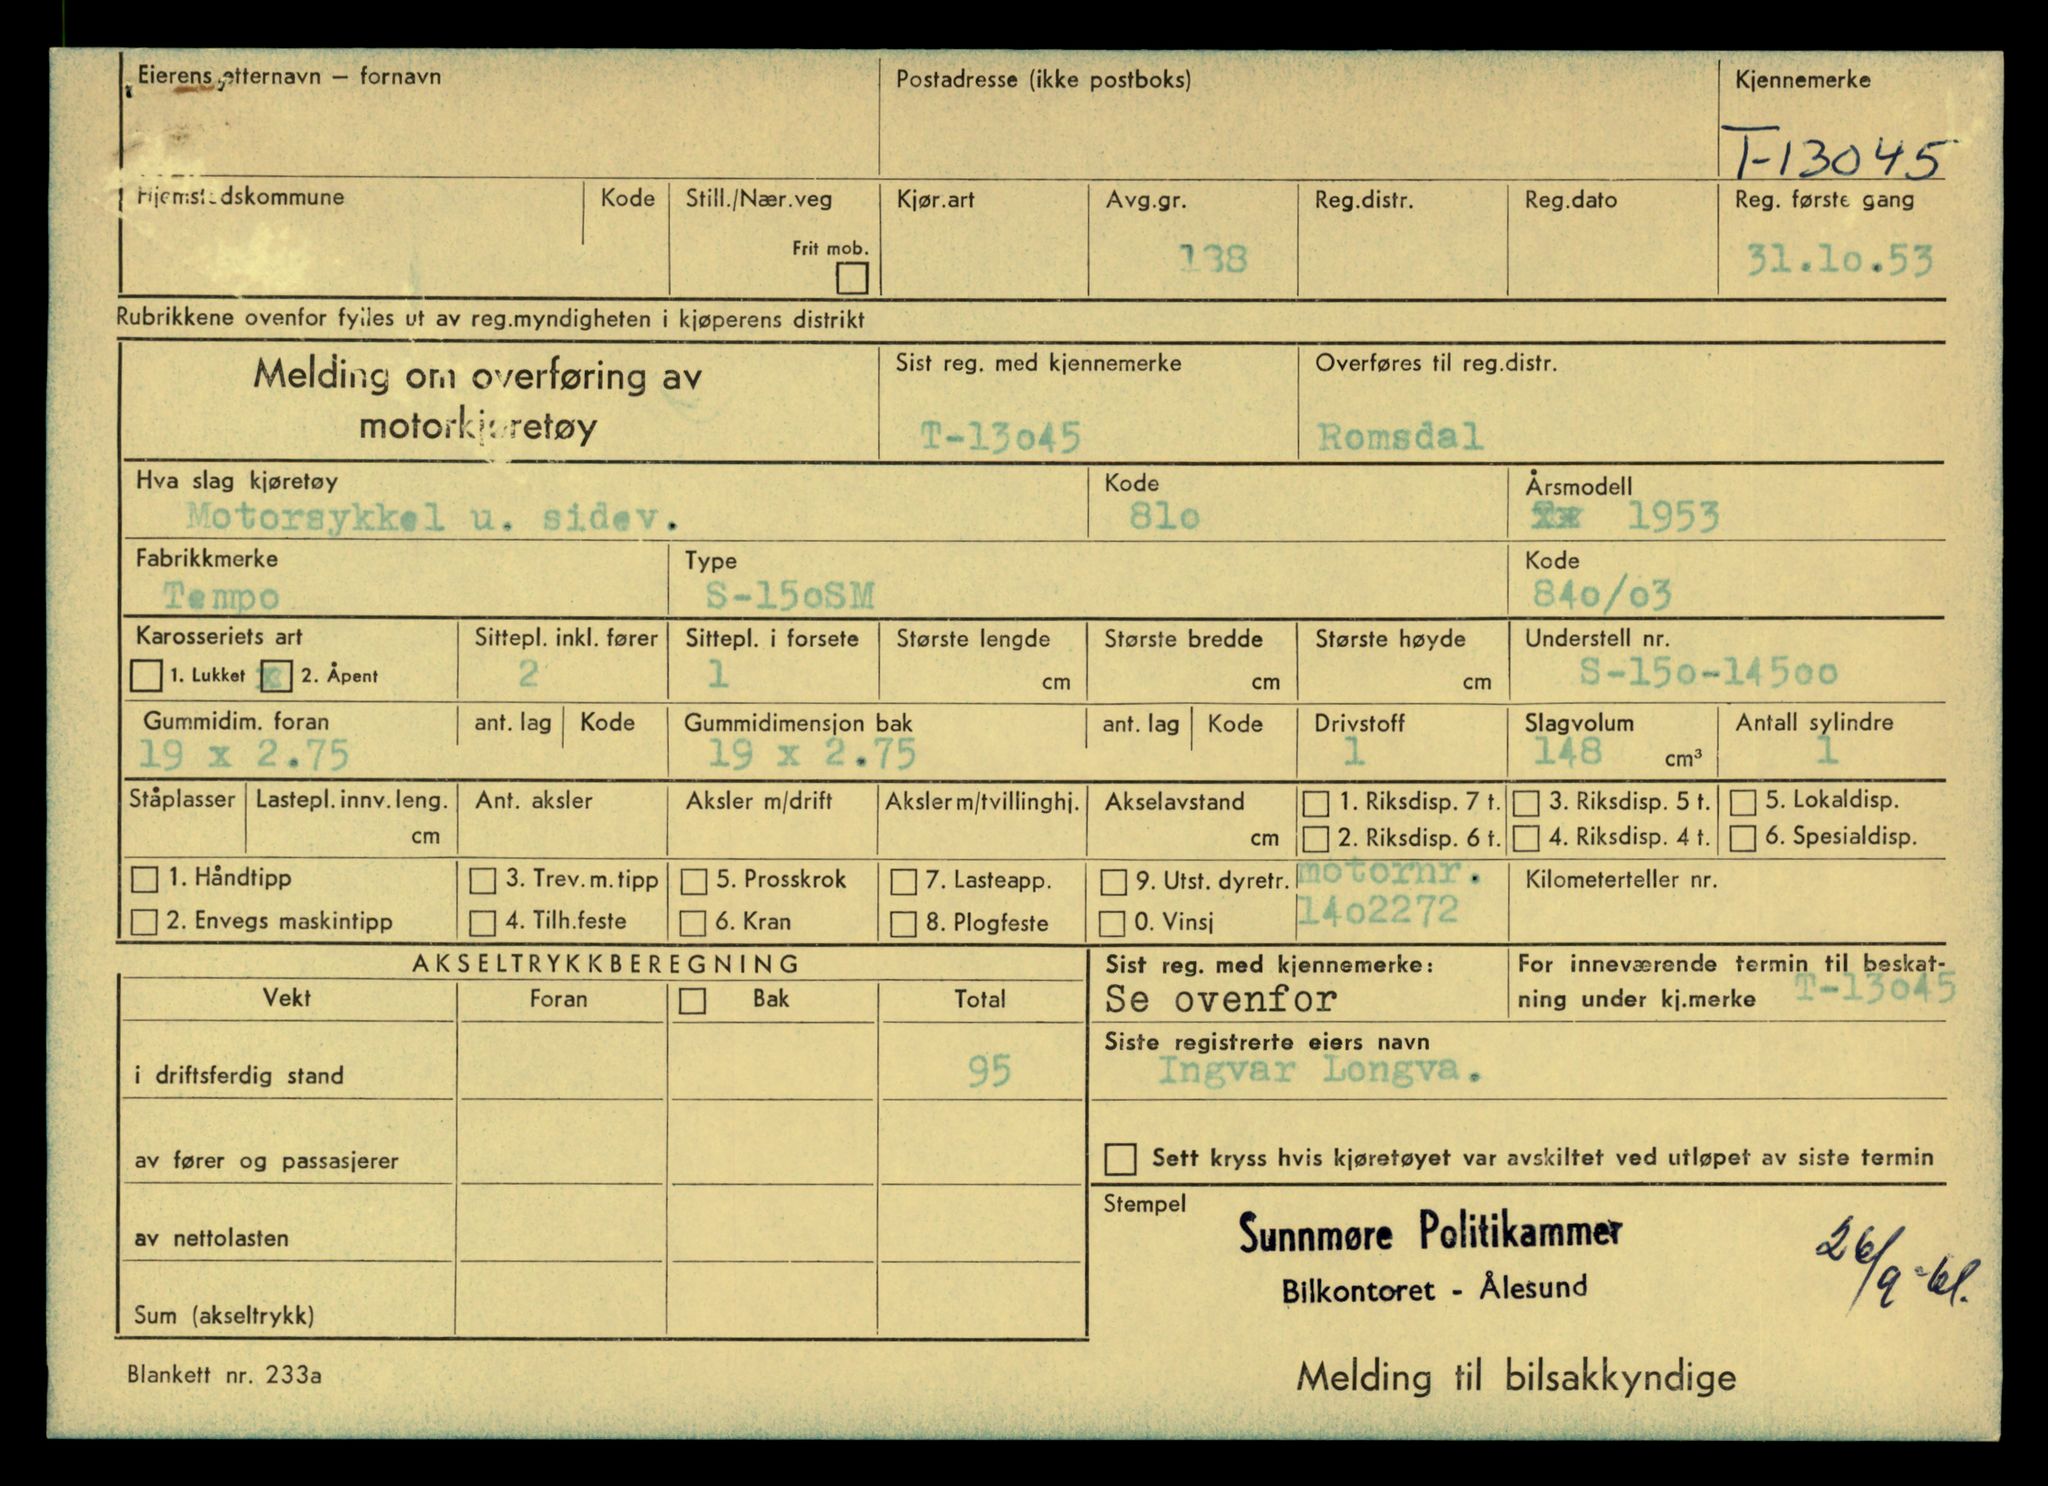 Eierens etternavn — fornavn Postadresse (ikke postboks) Kjennemerke
T-13045
Hjemstedskommune Kode Still./Nær.veg Kjør.art Avg.gr. Reg.distr. Reg.dato Reg. første gang
Frit mob. 138 31.10.53
Rubrikkene ovenfor fylles ut av reg.myndigheten i kjøperens distrikt
Melding om overføring av Sist reg. med kjennemerke Overføres til reg.distr.
motorkjøretøy T-13o45 Romsdal
Hva slag kjøretøy Kode Årsmodell
Motorsykkel u. sidev. 81o 1953
Fabrikkmerke Type Kode
Tempo S-15oSM 84o/o3
Karosseriets art Sittepl. inkl. fører Sittepl. i forsete Største lengde Største bredde Største høyde Understell nr.
1. Lukket x 2. Åpent 2 1 cm cm cm S-15o-145oo
Gummidim. foran ant. lag Kode Gummidimensjon bak ant. lag Kode Drivstoff Slagvolum Antall sylindre
19 x 2.75 19 x 2.75 1 148 cm³ 1
Ståplasser Lastepl. innv. leng. Ant. aksler Aksler m/drift Aksler m/tvillinghj. Akselavstand 1. Riksdisp. 7 t. 3. Riksdisp. 5 t. 5. Lokaldisp.
cm cm 2. Riksdisp. 6 t. 4. Riksdisp. 4 t. 6. Spesialdisp.
1. Håndtipp 3. Trev. m. tipp 5. Prosskrok 7. Lasteapp. 9. Utst. dyretr. motornr. Kilometerteller nr.
2. Envegs maskintipp 4. Tilh.feste 6. Kran 8. Plogfeste 0. Vinsj 14o2272
AKSELTRYKKBEREGNING Sist reg. med kjennemerke: For inneværende termin til beskat-
Vekt Foran Bak Total Se ovenfor ning under kj.merke T-13o45
Siste registrerte eiers navn
i driftsferdig stand 95 Ingvar Longva.
av fører og passasjerer Sett kryss hvis kjøretøyet var avskiltet ved utløpet av siste termin
Stempel
av nettolasten Sunnmøre Politikammer
Bilkontoret - Ålesund 26/9-61.
Sum (akseltrykk)
Blankett nr. 233a Melding til bilsakkyndige